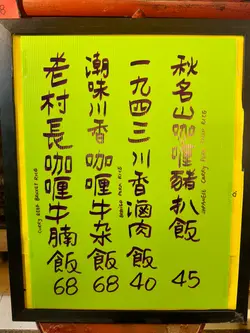 秋名山咖喱豬扒飯 45
Japanese Curry Pork Chop Rice
一九四三川香滷肉飯 40
Pork Rice
潮味川香咖喱牛杂飯 68
老村長咖喱牛腩飯 68
Curry Beef Brisket Rice